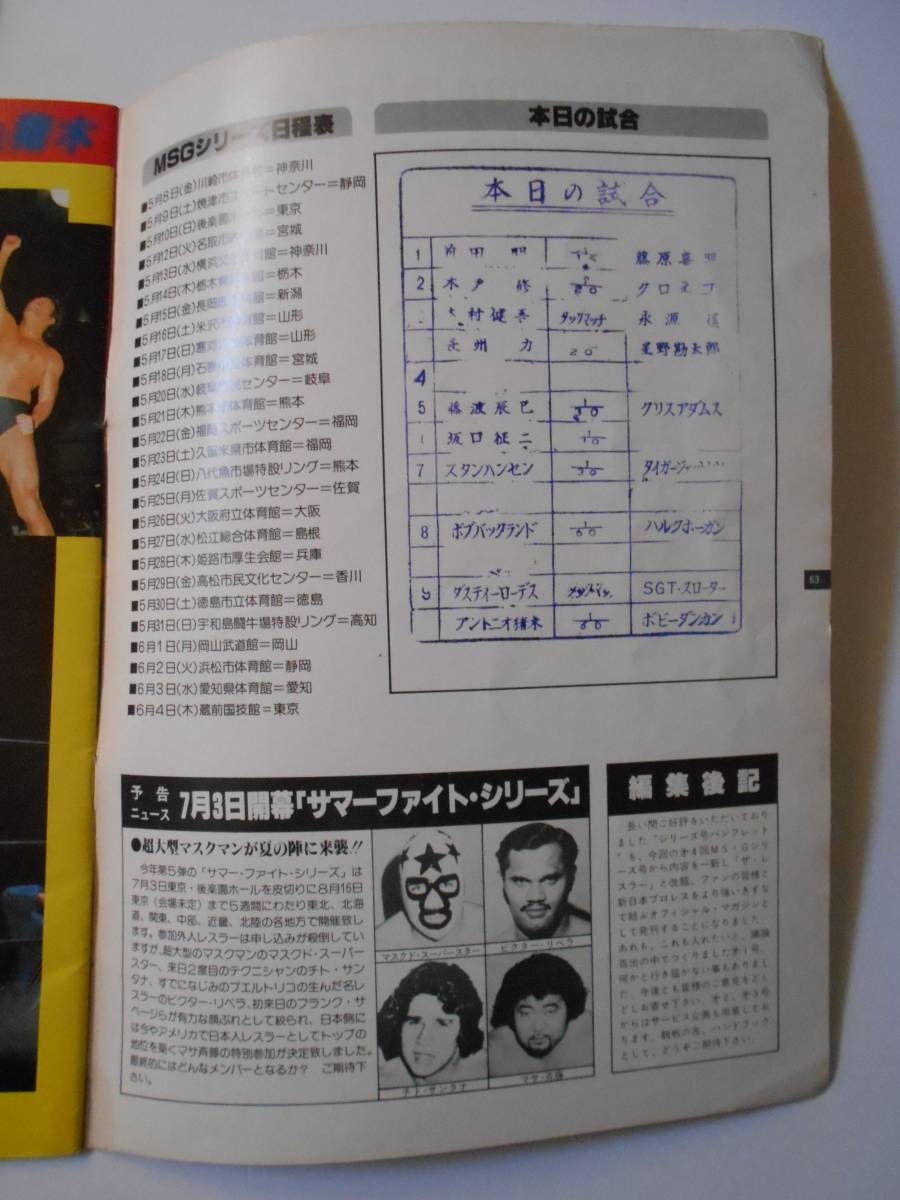 猪木
MSGシリーズ日程表
■5月8日(金)川崎市体育館=神奈川
■5月9日(土)焼津市スケートセンター=静岡
■5月10日(日)後楽園ホール=東京
■5月12日(火)名取市 =宮城
■5月13日(水)横浜文化体育館=神奈川
■5月14日(木)栃木 館=栃木
■5月15日(金)長岡 館=新潟
■5月16日(土)米沢市 館=山形
■5月17日(日)寒 体育館=山形
■5月18日(月)石巻 体育館=宮城
■5月20日(水)岐阜 センター=岐阜
■5月21日(木)熊本 体育館=熊本
■5月22日(金)福岡スポーツセンター=福岡
■5月23日(土)久留米県市体育館=福岡
■5月24日(日)八代魚市場特設リング=熊本
■5月25日(月)佐賀スポーツセンター=佐賀
■5月26日(火)大阪府立体育館=大阪
■5月27日(水)松江総合体育館=島根
■5月28日(木)姫路市厚生会館=兵庫
■5月29日(金)高松市民文化センター=香川
■5月30日(土)徳島市立体育館=徳島
■5月31日(日)宇和島闘牛場特設リング=高知
■6月1日(月)岡山武道館=岡山
■6月2日(火)浜松市体育館=静岡
■6月3日(水)愛知県体育館=愛知
■6月4日(木)蔵前国技館=東京
本日の試合
本日の試合
1 前田明 1/15 藤原喜明
2 木戸修 1/20 クロネコ
木村健吾 タッグマッチ 永源遙
長州力 20 星野勘太郎
4
5 藤波辰巳 1/30 クリスアダムス
坂口征二 1/30
7 スタンハンセン 1/30 タイガージ
8 ボブバックランド 1/60 ハルクホーガン
9 ダスティーローデス SGT・スローター
アントニオ猪木 1/60 ボビーダンカン
63
予告
ニュース
7月3日開幕「サマーファイト・シリーズ」
●超大型マスクマンが夏の陣に来襲!!
今年第5弾の「サマー・ファイト・シリーズ」は
7月3日東京・後楽園ホールを皮切りに8月16日
東京(会場未定)まで5週間にわたり東北、北海
道、関東、中部、近畿、北陸の各地方で開催致し
ます。参加外人レスラーは申し込みが殺倒してい
ますが、超大型のマスクマンのマスクド・スーパー
スター、来日2度目のテクニシャンのチト・サン
タナ、すでになじみのプエルトリコの生んだ名レ
スラーのビクター・リベラ、初来日のフランク・サ
ベージらが有力な顔ぶれとして絞られ、日本側に
は今やアメリカで日本人レスラーとしてトップの
地位を築くマサ斉藤の特別参加が決定致しました。
最終的にはどんなメンバーとなるか? ご期待下
さい。
マスクド・スーパースター
ビクター・リベラ
チト・サンタナ
マサ・斉藤
編集後記
長い間ご好評をいただいており
ました"シリーズ号パンフレット"
を、今回の才4回MS・Gシリ
ーズ号から内容を一新し「ザ・レ
スラー」と改題、ファンの皆様と
新日本プロレスをより強いきずな
で結ぶオフィシャル・マガジンと
して発刊することになりました。
あれも、これも入れたいと、議論
百出の中でつくりました才1号、
何かと行き届かない事もありまし
た。今後とも皆様のご意見をどし
どしお寄せ下さい。才2、才3号
からはサービス企画も用意してお
ります。観戦の友、ハンドブック
として、どうぞご期待下さい。